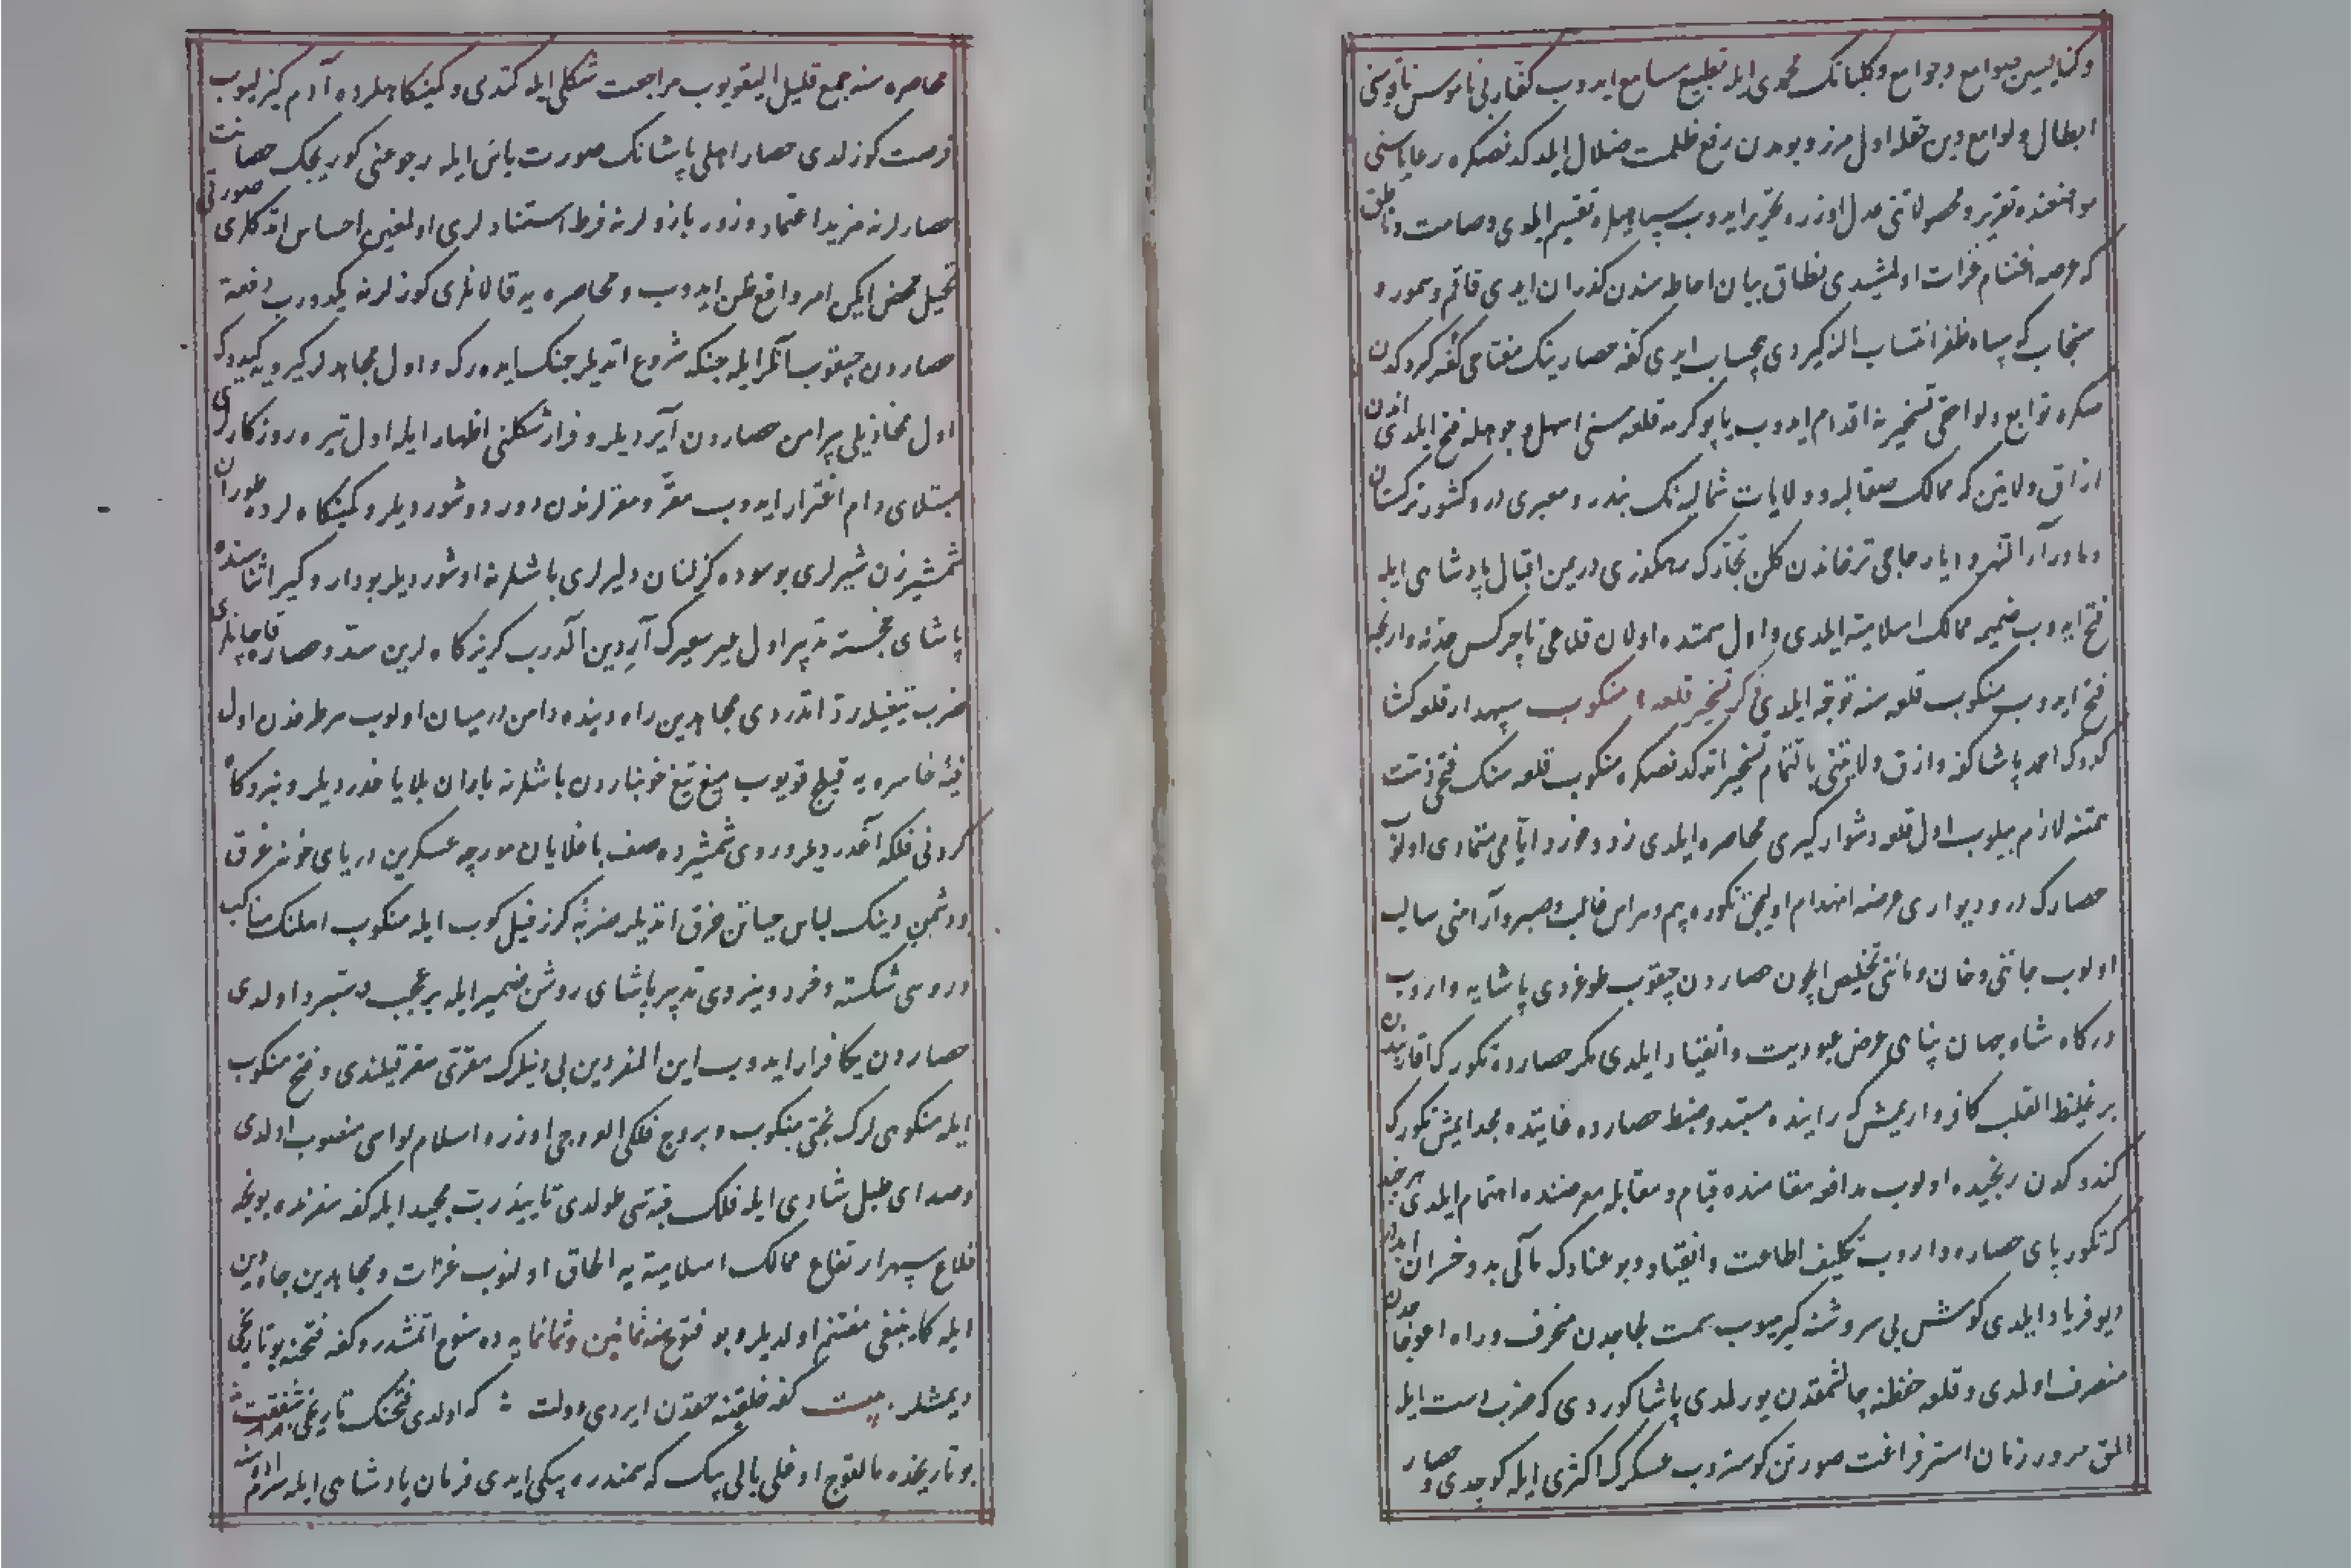 وكنايسين صوامع وجوامع وكلبانك محمدی ايله تطبيع مسامع ايدوب كفارڭ ناموسن ناقوسنی
ابطال ولوامع دين حقله اول مرز وبومدن رفع ظلمت ضلال ايلدكدنصكره رعاياسنی
مواضعنده تقرير ومحصولاتنی عدل اوزره تحرير ايدوب سپاهيلره تقسيم ايلدی وصامت وناطق
كه عرصه اغتنام غزات اولمشيدی نطاق بيان احاطه سندن كذران ايدی قاقم وسمور و
سنجاب كه سپاه ظفر انتساب النه كيردی بيحساب ايدی كفه حصارينك مفتاحی كفه كيردكدن
صكره توابع ولواحقی تسخيرنه اقدام ايدوب يابوكرمه قلعه سنی اسهل وجوهله فتح ايلدی اندن
ازاق ولايتن كه ممالك صقالبه وولايات شماليه نك بندر ومعبری در وكشور تركستان
وماوراء النهر و ايار حاجی ترخاندن كلن تجارك رهكذری در يمن اقبال پادشاهی ايله
فتح ايدوب ضميمه ممالك اسلاميه ايلدی و اول سمتده اولان قلاعی تا چركس حدنه وارنجه
فتح ايدوب منكوب قلعه سنه توجه ايلدی ذكر تسخير قلعه منكوب سپهدار قلعه كشا
كدوك احمد پاشا كفه وازاق ولايتنی بالتمام تسخير اتدكدنصكره منكوب قلعه سنك فتحی ذمت
همتنه لازم بيلوب اول قلعه دشوار كيری محاصره ايلدی زد وخورد ايامی متمادی اولوب
حصارك در وديواری عرضه انهدام اوليجق تكوره بيم وهراس غالب وصبر وآرامنی سالب
اولوب جاننی وخان ومانن تخليص ايچون حصاردن چيقوب طوغردی پاشايه واروب
دركاه شاه جهان پناهی عرض عبوديت وانقياد ايلدی مكر حصارده تكورك اقاربندن
بر غليظ القلب كافر واريمش كه راينده مستبد وضبط حصارده غايتده مجد ايمش تكورك
كندوكون رنجيده اولوب مدافعه مقامنده قيام ومقابله معرضنده اهتمام ايلدی هر چند
كه تكور پای حصاره واروب تكليف اطاعت وانقياد وبو عنادك مآلی بد وخسران ايدر
ديو فرياد ايلدی كوشش بی سروشنه كيرميوب سمت لجاجدن منحرف وراه اعوجاجدن
منصرف اولمدی وقلعه حفظنه چالشمقدن يورلمدی پاشا كوردی كه ضرب دست ايله
المق مرور زمان استر فراغت صورتن كوستروب عسكرك اكثری ايله كوچدی وحصار
محاصره سنه جمع قليل اليقويوب مراجعت شكلی ايله كتدی وكمينكاهلرده آدم كيزليوب
فرصت كوزلدی حصار اهلی پاشانك صورت يأس ايله رجوعنی كوريجك حصانت
حصارلرنه مزيد اعتماد وزور بازولرنه فرط استنادلری اولمغين احساس اتدكلری صورتی
تخيل محض ايكن امر واقع ظن ايدوب ومحاصره يه قالانلری كوزلرنه يكدورب دفعة
حصاردن چيقوب آنلر ايله جنكه شروع اتديلر جنك ايدهرك و اول مجاهدلر كيرويه كيدرك
اول مخاذيلی پيرامن حصاردن آيرديلر وفرار شكلنی اظهار ايله اول تيره روزكارلری
مبتلای دام اغترار ايدوب مقر ومفرلرندن دور دوشورديلر وكمينكاهلرده طوران
شمشيرزن شيرلری پوسوده كزلنان دليرلری باشلرنه اوشورديلر بو دار وكير اثناسنده
پاشای خجسته تدبير اول عير سعيرك آردين آلدرب كريزكاهلرين سد وحصاره قاچانلری
ضرب تيغله رد اتدردی مجاهدين راه دينده دامن درميان اولوب هر طرفدن اول
فئه خاسره يه قيلج قويوب ميغ تيغ خونباردن باشلرنه باران بلا ياغدرديلر ونبردكاه
كردنی فلكه آغدرديلر وروی شمشيرده صف باغلايان مورچه عسكرين دريای خونه غرق
ودشمن دينك لباس حياتن خرق اتديلر ضربۀ كرز فيل كوب ايله منكوب اهلنك مناكب
ورؤسی شكسته وخرد وينه دی تدبير پاشای روشن ضمير ايله بر عجب دستبرد اولدی
حصاردن يكا فرار ايدوب اين المفر دين بی دينلرك مقری سقر قيلندی وفتح منكوب
ايله منكوسی لرك بختی منكوب وبروج فلكی العروجی اوزره اسلام لواسی منصوب اولدی
وصدای طبل شادی ايله فلك قبه سی طولدی تاييد رب مجيد ايله كفه سفرنده بونجه
قلاع سپهر ارتفاع ممالك اسلاميه يه الحاق اولنوب غزات ومجاهدين جاهدين
ايله كما ينبغی مغتنم اولديلر وبو فتوح سنه ثمانين وثمانمايه ده سنوح اتمشدر وكفه فتحنه بو تاريخی
ديمشلر بيت كفه خلقنه حقدن ايردی دولت كه اولدی فتحنك تاريخی شفقت
بو تاريخده مالقوج اوغلی بالی بيك كه سمندره بيكی ايدی فرمان پادشاهی ايله